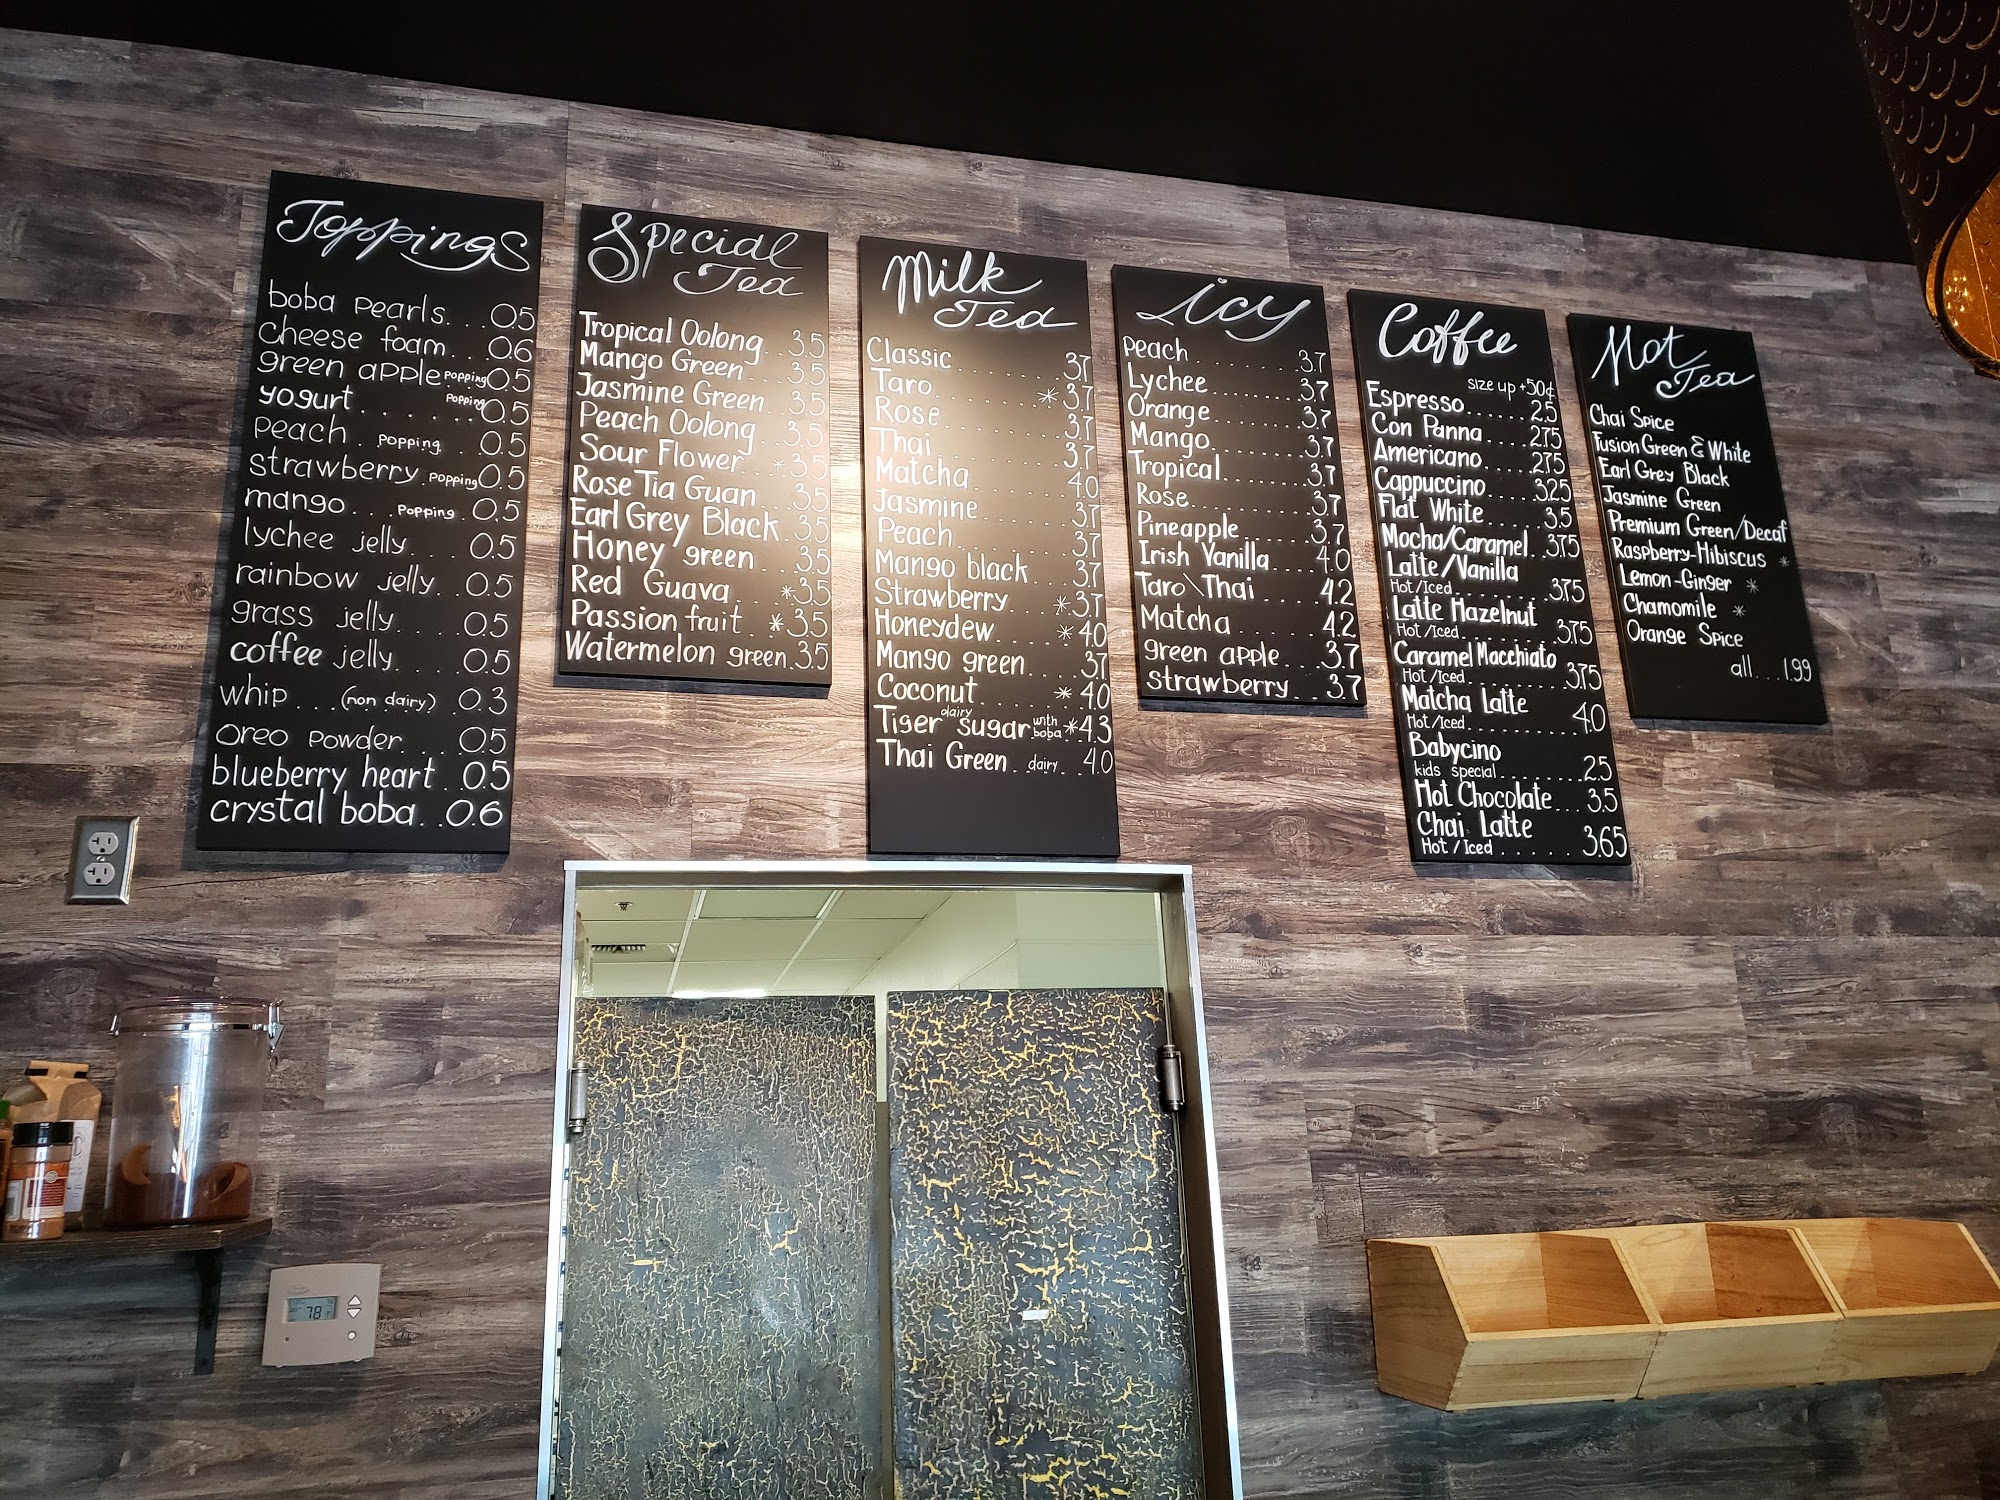 Toppings
boba pearls. . . 0.5
cheese foam. . . 0.6
green apple popping 0.5
yogurt . . . . . . popping 0.5
peach . popping . 0.5
strawberry popping 0.5
mango. . . popping . 0.5
lychee jelly. . . 0.5
rainbow jelly. . 0.5
grass jelly. . . . 0.5
coffee jelly. . . . 0.5
whip . . . (non dairy) . 0.3
oreo powder. . . 0.5
blueberry heart . 0.5
crystal boba. . 0.6
Special
Tea
Tropical Oolong . . 3.5
Mango Green . . . 3.5
Jasmine Green . . 3.5
Peach Oolong . . . 3.5
Sour Flower . . * 3.5
Rose Tia Guan . . . 3.5
Earl Grey Black . 3.5
Honey green . . . 3.5
Red Guava . . . *3.5
Passion fruit . . *3.5
Watermelon green. 3.5
Milk
Tea
Classic . . . . . . . . . 3.7
Taro . . . . . . . . * 3.7
Rose . . . . . . . . . . 3.7
Thai . . . . . . . . . . 3.7
Matcha . . . . . . . . 4.0
Jasmine . . . . . . . 3.7
Peach . . . . . . . . . 3.7
Mango black . . . . 3.7
Strawberry. . . . *.3.7
Honeydew. . . . . * 4.0
Mango green. . . . . 3.7
Coconut * 4.0
Tiger dairy sugar with boba *4.3
Thai Green . . dairy. . . 4.0
icy
Peach . . . . . . . . . 3.7
Lychee . . . . . . . . 3.7
Orange . . . . . . . . 3.7
Mango. . . . . . . . . 3.7
Tropical. . . . . . . . 3.7
Rose. . . . . . . . . . . 3.7
Pineapple . . . . . . 3.7
Irish Vanilla . . . . 4.0
Taro\Thai . . . . . 4.2
Matcha . . . . . . . 4.2
green apple. . . . 3.7
strawberry. . . 3.7
Coffee
size up +50¢
Espresso. . . . . . 2.5
Con Panna . . . . 2.75
Americano. . . . . 2.75
Cappuccino . . . . 3.25
Flat White . . . . . 3.5
Mocha/Caramel. . 3.75
Latte/Vanilla
Hot/Iced. . . . . . . . . 3.75
Latte Hazelnut
Hot/Iced. . . . . . . . . 3.75
Caramel Macchiato
Hot/Iced. . . . . . . . . . 3.75
Matcha Latte
Hot/Iced. . . . . . . . . 4.0
Babycino
kids special. . . . . . . . 2.5
Hot Chocolate. . . 3.5
Chai Latte
Hot / Iced . . . . . . 3.65
Hot
Tea
Chai Spice
Fusion Green & White
Earl Grey Black
Jasmine Green
Premium Green/Decaf
Raspberry-Hibiscus *
Lemon-Ginger *
Chamomile *
Orange Spice
all. . . 1.99
78